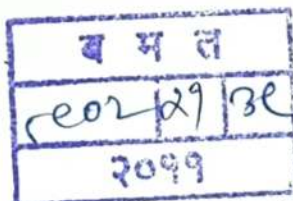 ब म त
८९०२ २१ ३९
२०११